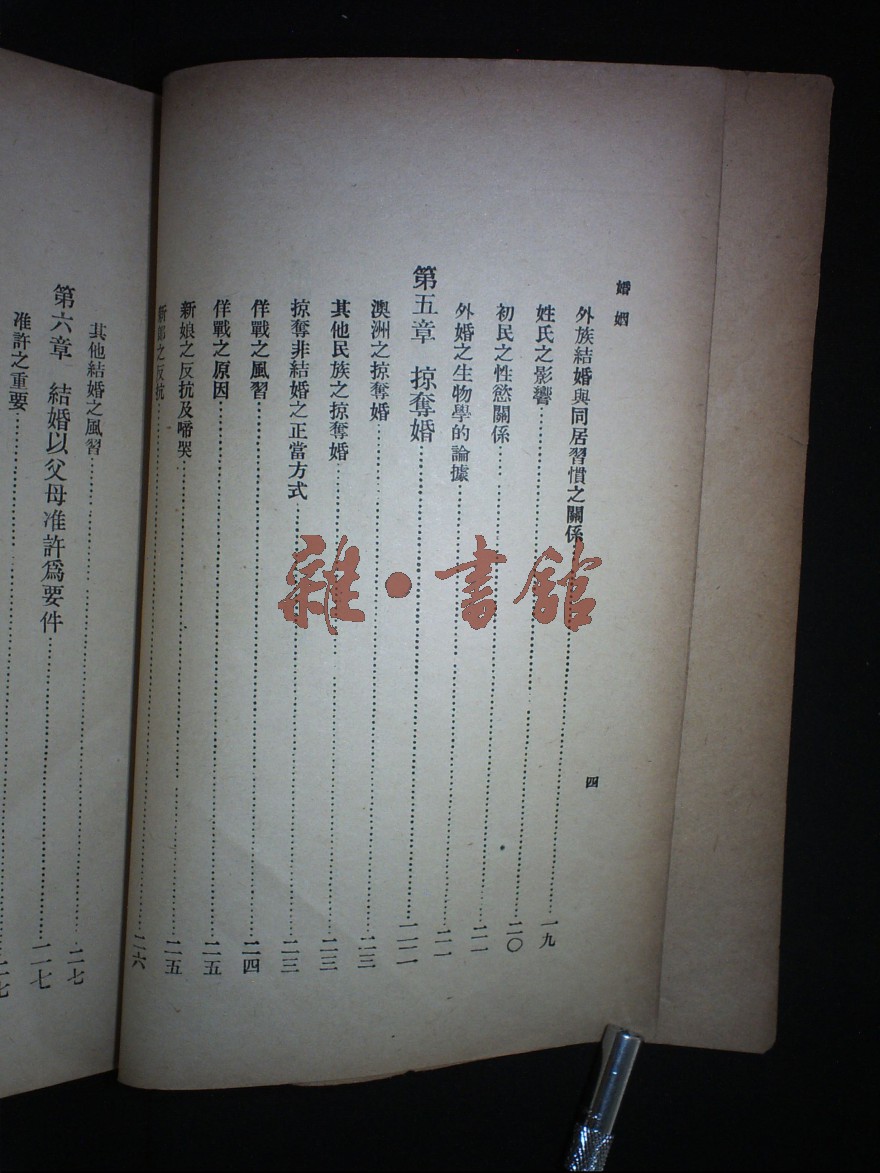 婚姻
四
外族結婚與同居習慣之關係……一九
姓氏之影響……二〇
初民之性慾關係……二一
外婚之生物學的論據……二一
第五章 掠奪婚……二二
澳洲之掠奪婚……二三
其他民族之掠奪婚……二三
掠奪非結婚之正當方式……二三
佯戰之風習……二四
佯戰之原因……二五
新娘之反抗及啼哭……二五
新郎之反抗……二六
其他結婚之風習……二七
第六章 結婚以父母准許爲要件……二七
准許之重要……二七
雜·書館